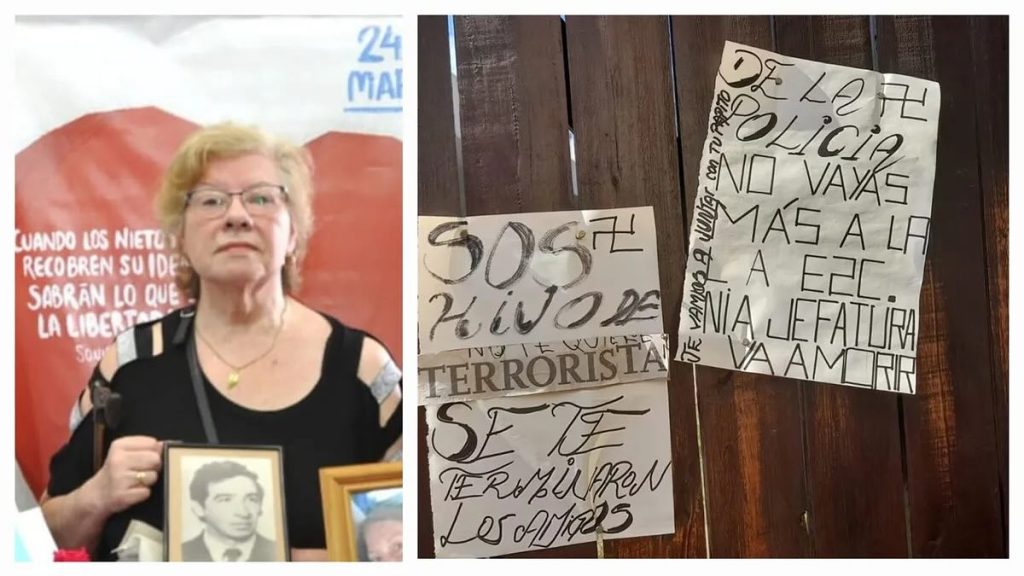 24
MAR
CUANDO LOS NIETO
RECOBREN SU IDE
SABRÁN LO QUE
LA LIBERTAD
SOS
HIJO DE
NO TE QUIERE
TERRORISTA
SE TE
TERMINARON
LOS AMIGOS
DE LA
POLICIA
NO VAYAS
MÁS A LA
A EZC.
NIA JEFATURA
VA A MORR
TE VAMOS A JUNTAR CON TU PAPITO